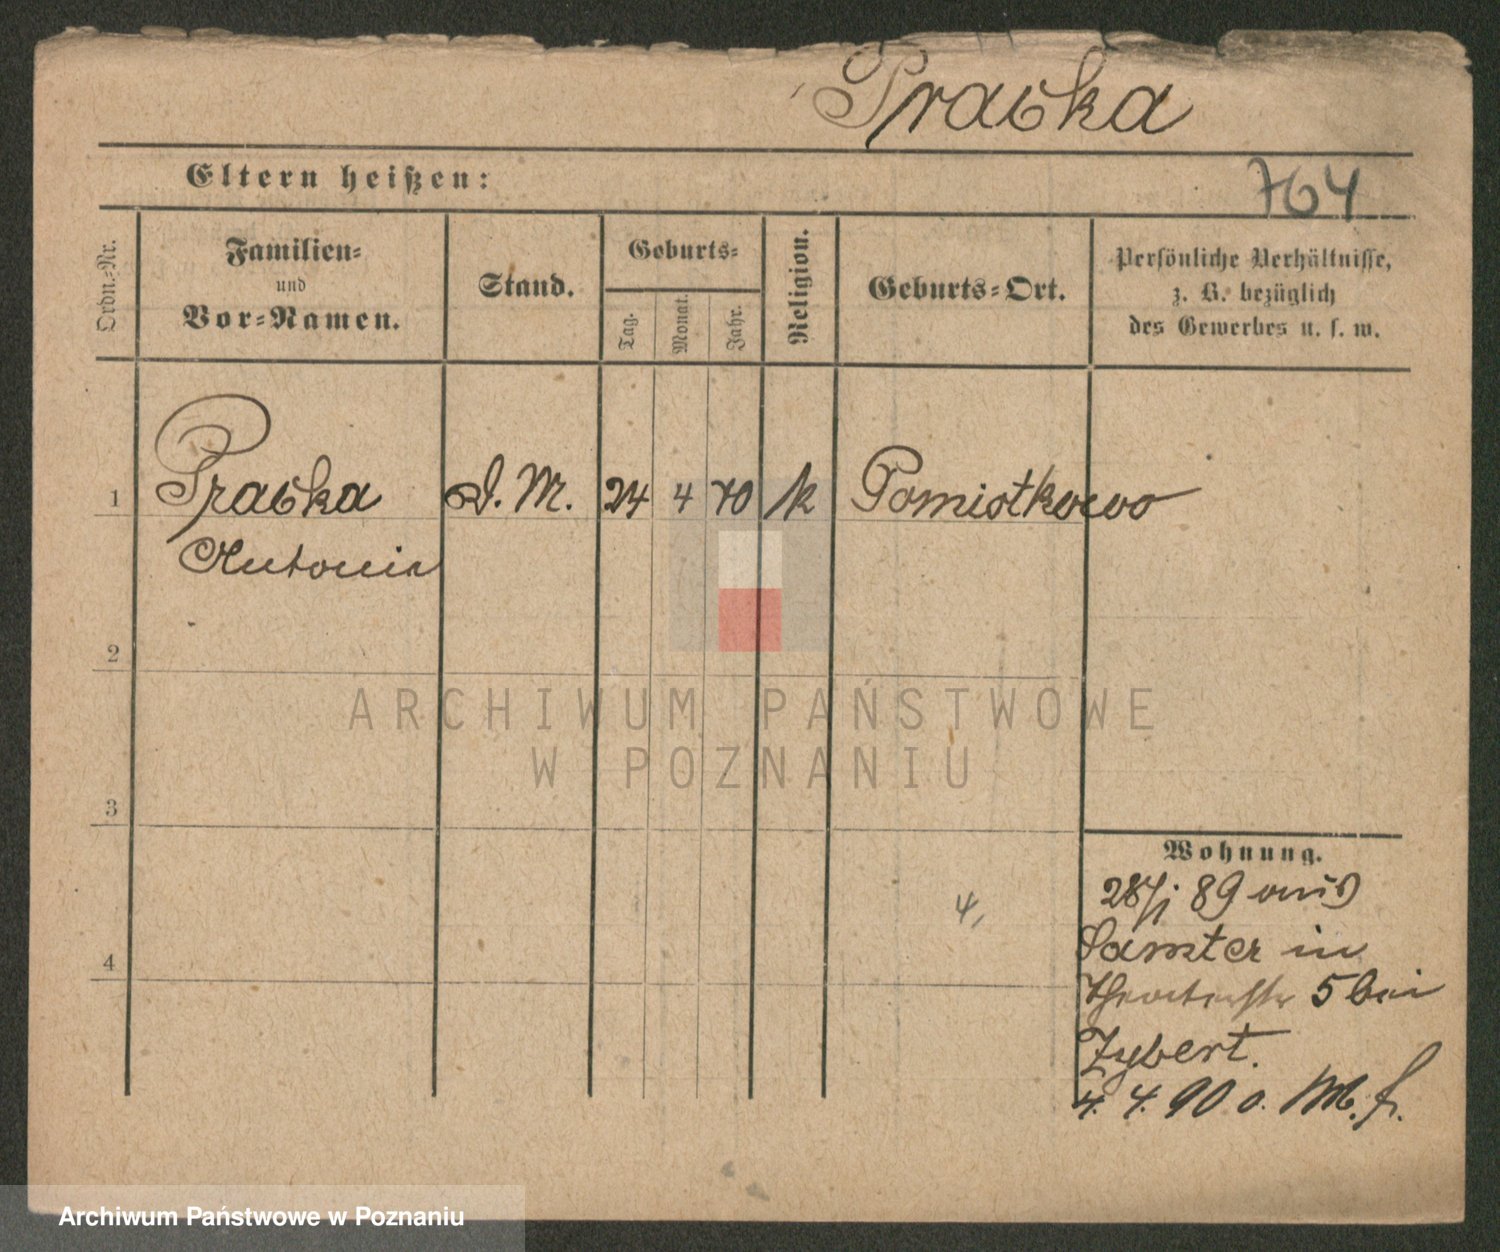 Pracka
Eltern heißen:
764
Ordn.-Nr.
Familien-
und
Vor-Namen.
Stand.
Geburts-
Tag.
Monat.
Jahr.
Religion.
Geburts-Ort.
Persönliche Verhältnisse,
z. B. bezüglich
des Gewerbes u. s. w.
1 Pracka D. M. 24 4 70 k Pamiotkowo
Antonie
2
3
4
ARCHIWUM PAŃSTWOWE
W POZNANIU
4,
Wohnung.
28/1 89 aus
Samter in
Theaterstr 5 bei
Zybert.
4. 4. 90 o. M. f.
Archiwum Państwowe w Poznaniu